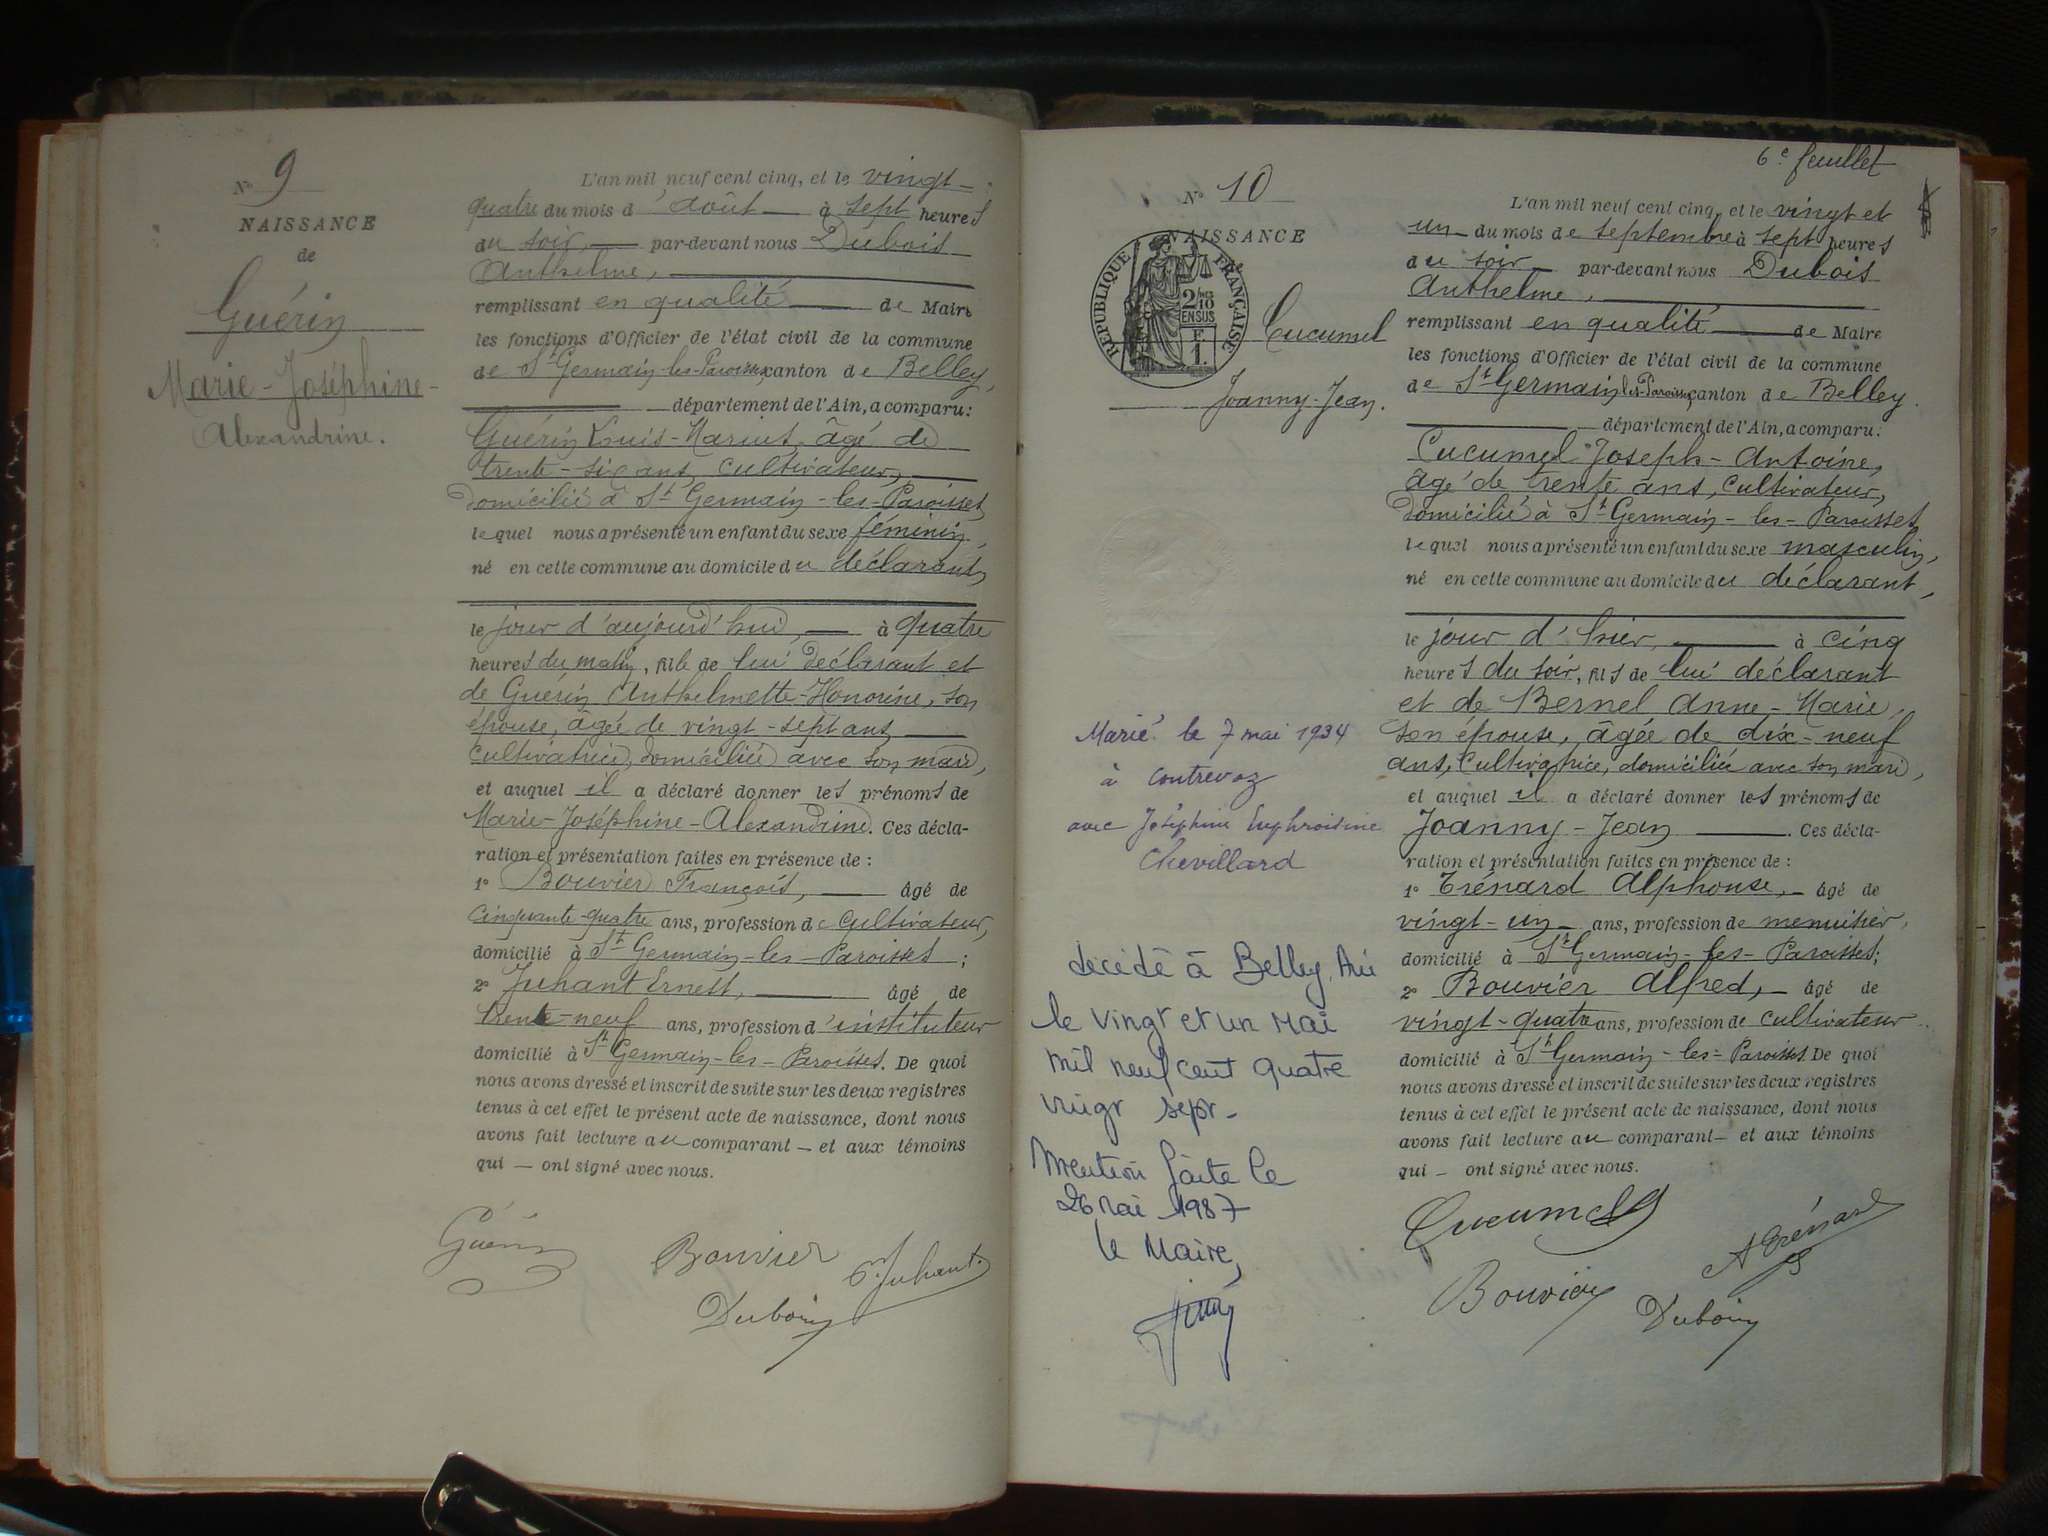 N° 9
NAISSANCE
de
Guérin
Marie-Joséphine-
Alexandrine.
L'an mil neuf cent cinq, et le vingt-
quatre du mois d'août à sept heures
du soir, par-devant nous Dubois
Anthelme,
remplissant en qualité de Maire
les fonctions d'Officier de l'état civil de la commune
de St Germain-les-Paroisses, canton de Belley,
département de l'Ain, a comparu:
Guérin Louis-Marius, âgé de
trente-six ans, cultivateur,
domicilié à St Germain-les-Paroisses,
lequel nous a présenté un enfant du sexe féminin,
né en cette commune au domicile du déclarant,
le jour d'aujourd'hui, à quatre
heures du matin, fille de lui déclarant et
de Guérin Anthelmette-Honorine, son
épouse, âgée de vingt-sept ans
cultivatrice, domiciliée avec son mari,
et auquel il a déclaré donner les prénoms de
Marie-Joséphine-Alexandrine. Ces décla-
ration et présentation faites en présence de:
1° Bouvier François, âgé de
cinquante-quatre ans, profession de cultivateur,
domicilié à St Germain-les-Paroisses;
2° Juhant Ernest, âgé de
trente-neuf ans, profession d'instituteur
domicilié à St Germain-les-Paroisses. De quoi
nous avons dressé et inscrit de suite sur les deux registres
tenus à cet effet le présent acte de naissance, dont nous
avons fait lecture au comparant — et aux témoins
qui — ont signé avec nous.
Guérin
Bouvier
E. Juhant
Dubois
6e feuillet
N° 10
NAISSANCE
de
RÉPUBLIQUE FRANÇAISE
2/10
EN SUS
F
1
Cucumel
Joanny-Jean.
Marié le 7 mai 1934
à Contrevoz
avec Joséphine Euphroisine
Chevillard
décédé à Belley, Ain
le vingt et un Mai
mil neuf cent quatre
vingt sept-
Mention faite le
26 Mai 1987
le Maire,
L'an mil neuf cent cinq, et le vingt et
un du mois de septembre à sept heures
du soir par-devant nous Dubois
Anthelme,
remplissant en qualité de Maire
les fonctions d'Officier de l'état civil de la commune
de St Germain les-Paroisses, canton de Belley.
département de l'Ain, a comparu:
Cucumel Joseph-Antoine,
âgé de trente ans, cultivateur,
domicilié à St Germain-les-Paroisses
lequel nous a présenté un enfant du sexe masculin,
né en cette commune au domicile du déclarant,
le jour d'hier, à cinq
heures du soir, fils de lui déclarant
et de Bernel Anne-Marie,
son épouse, âgée de dix-neuf
ans, cultivatrice, domiciliée avec son mari,
et auquel il a déclaré donner les prénoms de
Joanny-Jean. Ces décla-
ration et présentation faites en présence de:
1° Trénard Alphonse, âgé de
vingt-un ans, profession de menuisier,
domicilié à St Germain-les-Paroisses;
2° Bouvier Alfred, âgé de
vingt-quatre ans, profession de cultivateur
domicilié à St Germain-les-Paroisses De quoi
nous avons dressé et inscrit de suite sur les deux registres
tenus à cet effet le présent acte de naissance, dont nous
avons fait lecture au comparant — et aux témoins
qui — ont signé avec nous.
Cucumel
A Trénard
Bouvier
Dubois